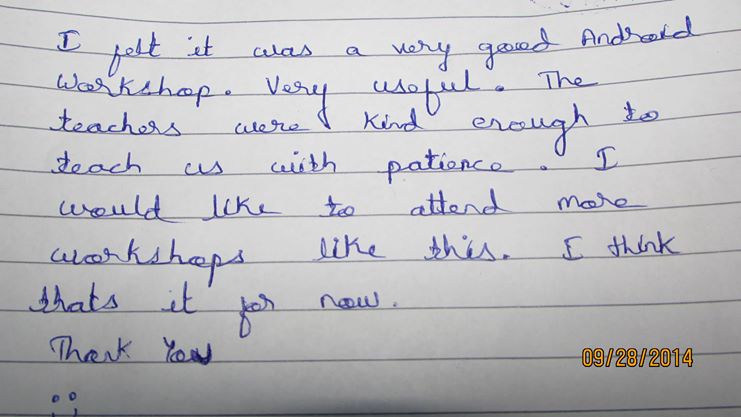 I felt it was a very good Android
workshop. Very useful. The
teachers were kind enough to
teach us with patience. I
would like to attend more
workshops like this. I think
thats it for now.
Thank You
09/28/2014
:;